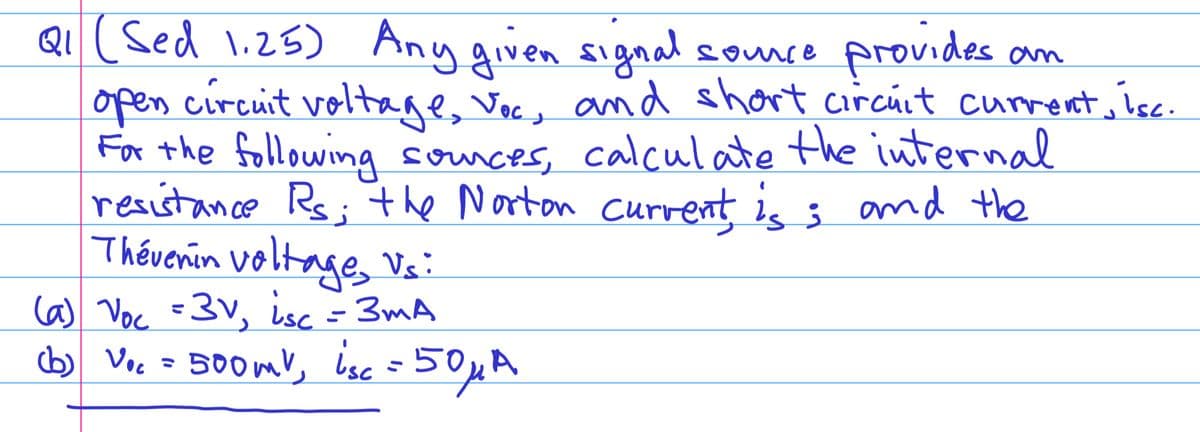 Q1 (Sed 1.25) Any given signal source provides an
open circuit voltage, Voc, and short circuit current, isc.
For the following sources, calculate the internal
resistance Rs; the Norton current, is; and the
Thévenin voltage, Vs:
(a) Voc = 3V, isc = 3mA
(b) Voc = 500mV, isc = 50μA